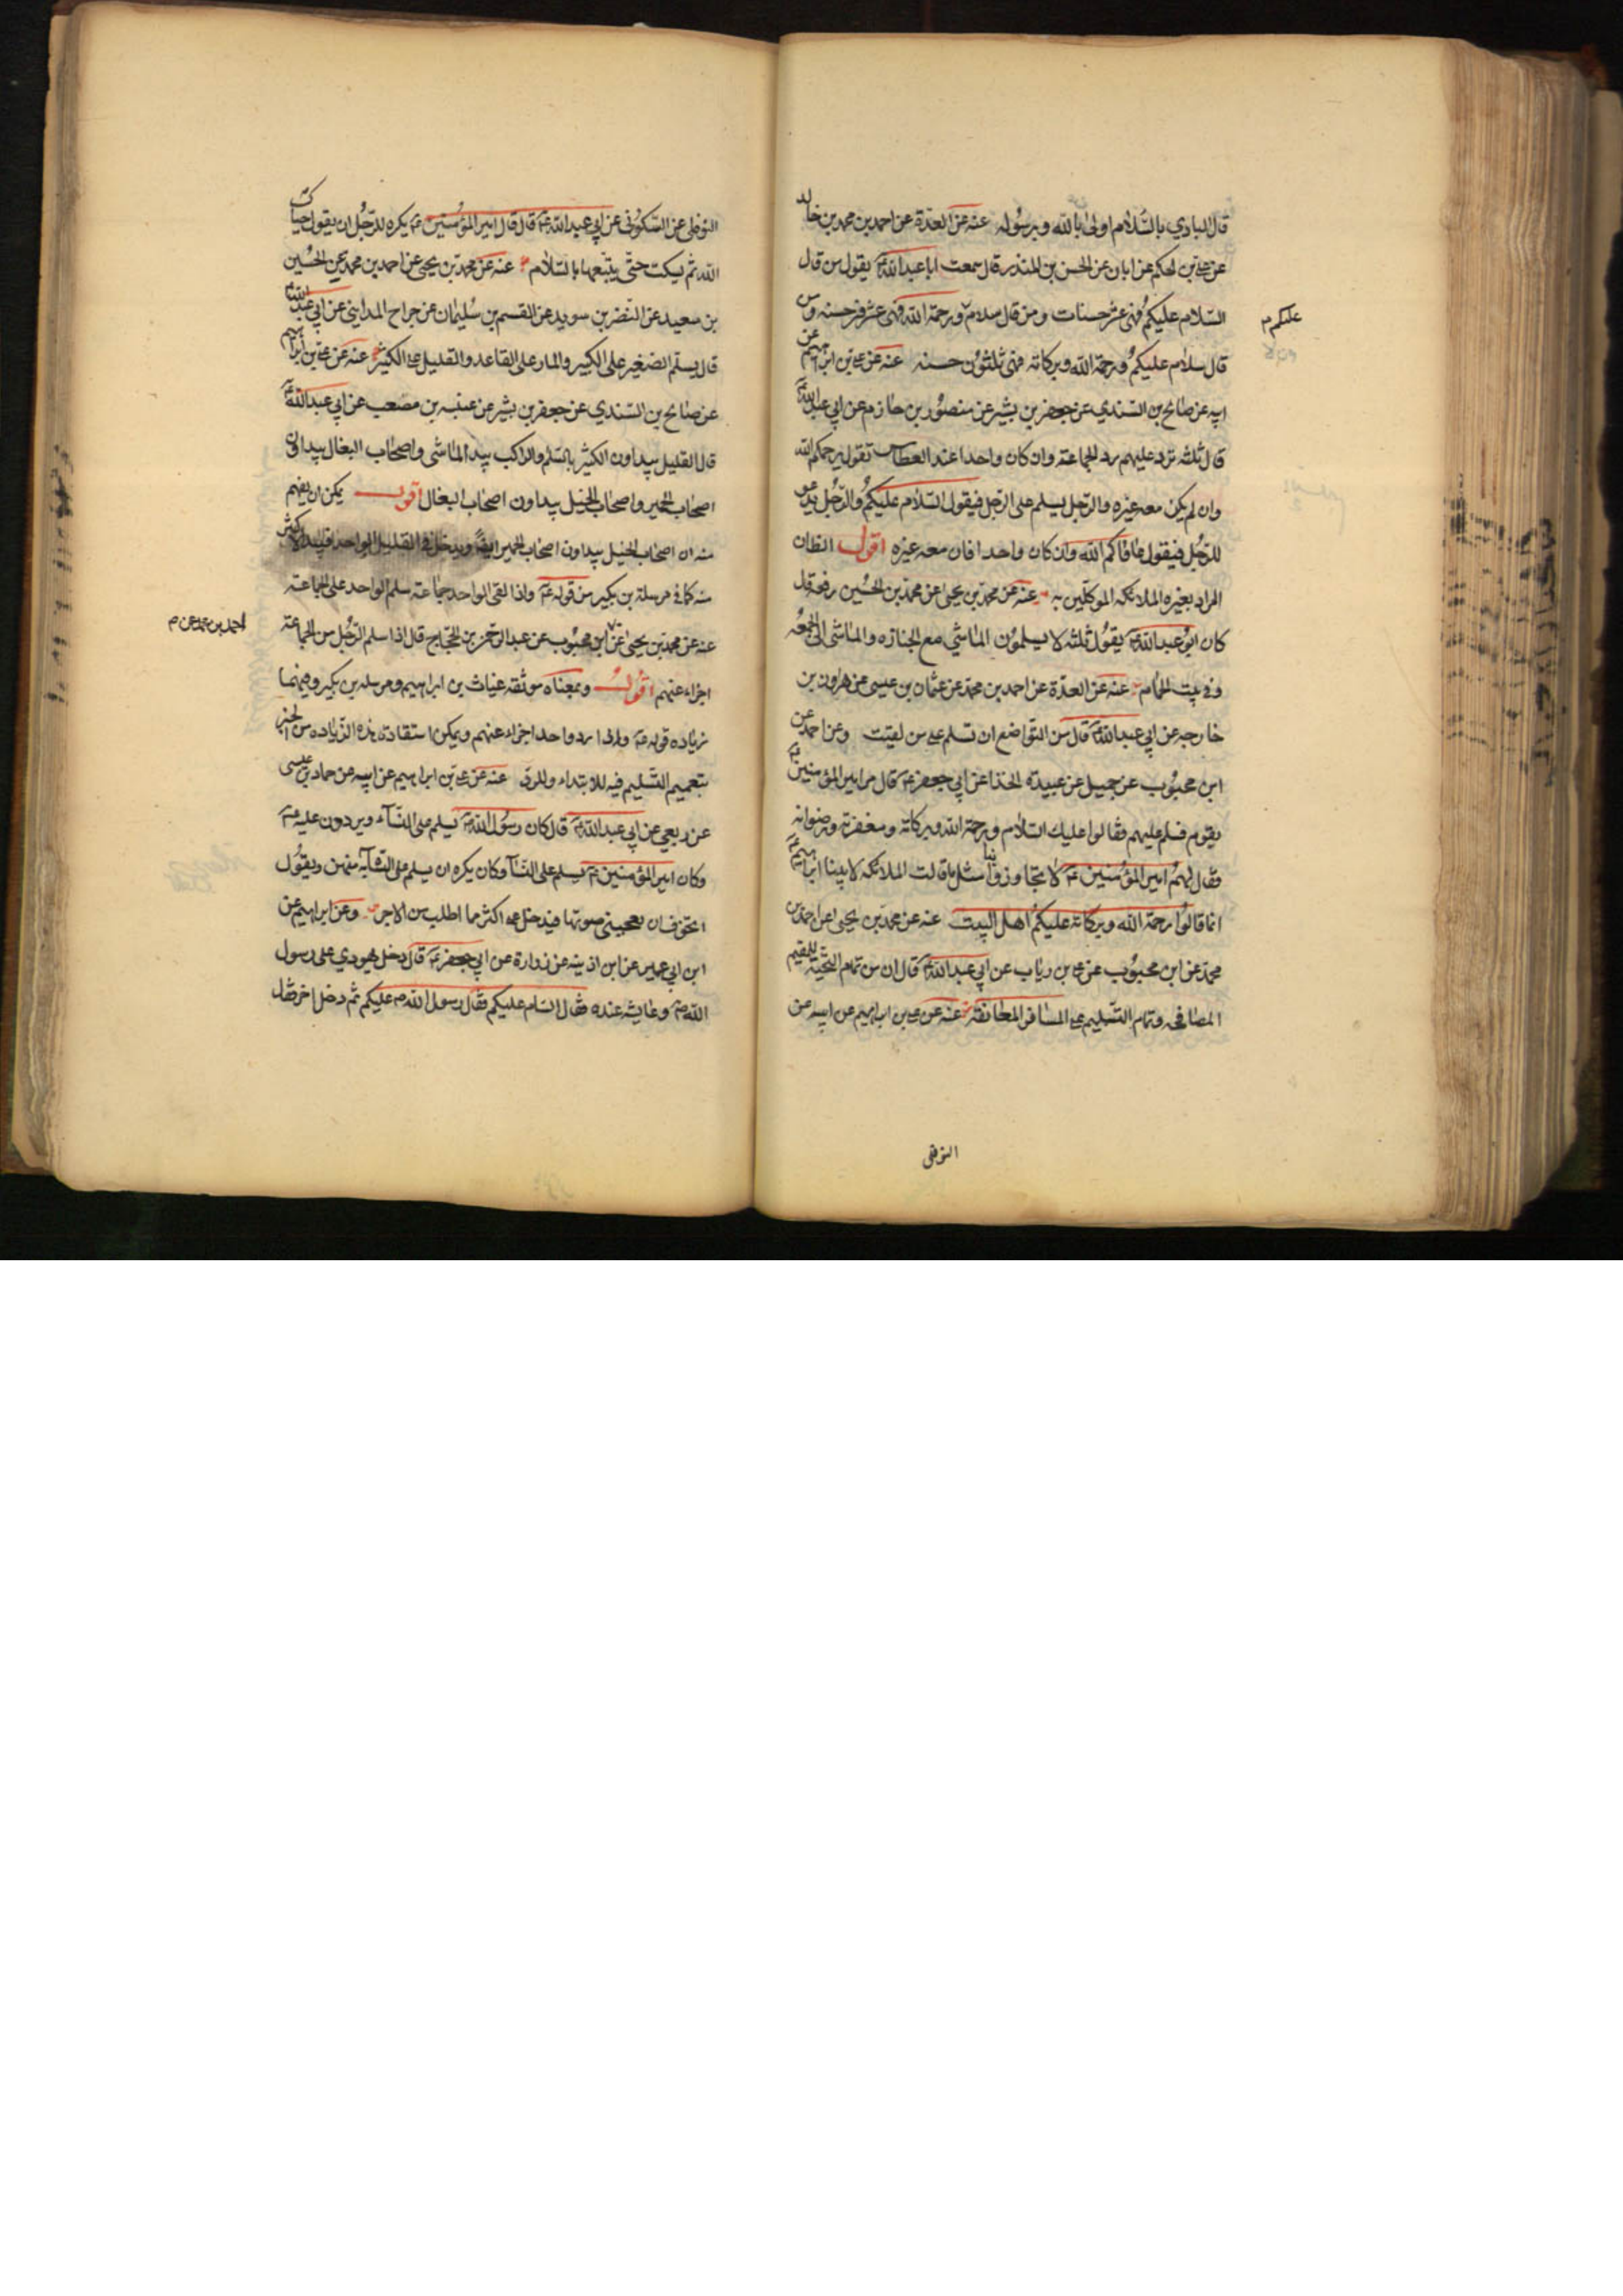 قال البادي بالسّلام اولى بالله وبرسُوله عنه عن العدّة عن احمد بن محمد بن خالد
عن علي بن الحكم عن ابان عن الحسن بن المنذر قال سمعت ابا عبد الله ع يقول من قال
السّلام عليكمُ فهي عشر حسنات ومن قال سلام ورحمة الله فهي عشرون حسنه ومن
عليكم م
قال سلام عليكمُ ورحمة الله وبركاته فهي ثلثوُن حسنه عنه عن علي بن ابرهيم عن
ابيه عن صالح بن السّندي عن جعفر بن بشير عن منصوُر بن حازم عن ابي عبد الله ع
قال ثلثه ترد عليهم رد الجماعة وان كان واحدا عند العطاس تقول يرحمكم الله
وان لم يكن معه غيره والرّجل يسلم على الرّجل فيقول السّلام عليكمُ والرّجُل يدعو
للرّجُل فيقول عافاكم الله وان كان واحدا فان معه غيره اقول الظان
المراد بغيره الملائكه الموكلين به عنه عن محمّد بن يحيى عن محمّد بن الحُسين رفعه قال
كان ابُو عبد الله ع يقوُل ثلثه لا يسلموُن الماشي مع الجنازه والماشي الى الجمعُه
وفي بيت الحمّام عنه عن العدّة عن احمد بن محمّد عن عثمان بن عيسى عن هارون بن
خارجه عن ابي عبد الله ع قال من التواضع ان تسلم على من لقيت وعن احمد عن
ابن محبوُب عن جميل عن عبيدة الحذا عن ابي جعفر ع قال مر امير المؤمنين ع
بقوم فسلم عليهم فقالوا عليك السّلام ورحمة الله وبركاته ومغفرته ورضوانه
فقال لهمُ امير المؤمُنين ع لا تجاوزوا بنا مثل ما قالت الملائكه لابينا ابرهيم ع
انما قالوُا رحمة الله وبركاته عليكمُ اهل البيت عنه عن محمّد بن يحيى عن احمد بن
محمّد عن ابن محبوُب عن علي بن رياب عن ابي عبد الله ع قال ان من تمام التّحيّة للمقيم
المصافحه وتمام التّسليم على المسافر المعانقة عنه عن علي بن ابرهيم عن ابيه عن
النوفلي
النوفلي عن السّكوُني عن ابي عبد الله ع قال قال امير المؤمُنين ع يكره للرّجُل ان يقول حياك
الله ثم يسكت حتّى يتبعها بالسّلام عنه عن محمّد بن يحيى عن احمد بن محمّد عن الحُسين
بن سعيد عن النّضر بن سويد عن القسم بن سُليمان عن جراح المدايني عن ابي عبد الله ع
قال يسلّم الصّغير على الكبير والمار على القاعد والقليل على الكثير عنه عن علي بن ابراهيم
عن صالح بن السّندي عن جعفر بن بشير عن عنبسه بن مصعب عن ابي عبد الله ع
قال القليل يبداون الكثير بالسّلم والراكب يبدا الماشي واصحاب البغال يبداون
اصحاب الحمير واصحاب الخيل يبداون اصحاب البغال اقول يمكن ان يفهم
منه ان اصحاب الخيل يبداون اصحاب الحمير ايضا ويدخل في القليل الواحد فيبدا الاكثر
منه كما في مرسلة بن بكير من قوله ع واذا لقى الواحد جماعة سلم الواحد على الجماعة
عنه عن محمّد بن يحيى عن ابن محبوُب عن عبد الرّحمن بن الحجّاج قال اذا سلم الرّجُل من الجماعة
احمد بن محمد عن م
اجزاء عنهم اقُول وبمعناه موثقه غياث بن ابراهيم ومرسله بن بكير وفيهما
زياده قوله ع واذا رد واحد اجزاء عنهم ويمكن استفادة هذه الزّياده من الخبر
بتعميم التّسليم فيه للابتداء والرد عنه عن علي بن ابراهيم عن ابيه عن حماد بن عيسى
عن ربعي عن ابي عبد الله ع قال كان رسُول الله ص يسلم على النسآء ويردون عليه ع
وكان امير المؤمنين ع يسلم على النسآ وكان يكره ان يسلم على الشّابه منهن ويقوُل
اتخوف ان يعجبني صوتها فيدخل علي اكثر مما اطلب من الاجر وعن ابراهيم عن
ابن ابي عمير عن ابن اذينه عن زرارة عن ابي جعفر ع قال دخل يهودي على رسول
الله ص وعايشه عنده فقال السام عليكم فقال رسول الله ص عليكم ثم دخل اخر فقال